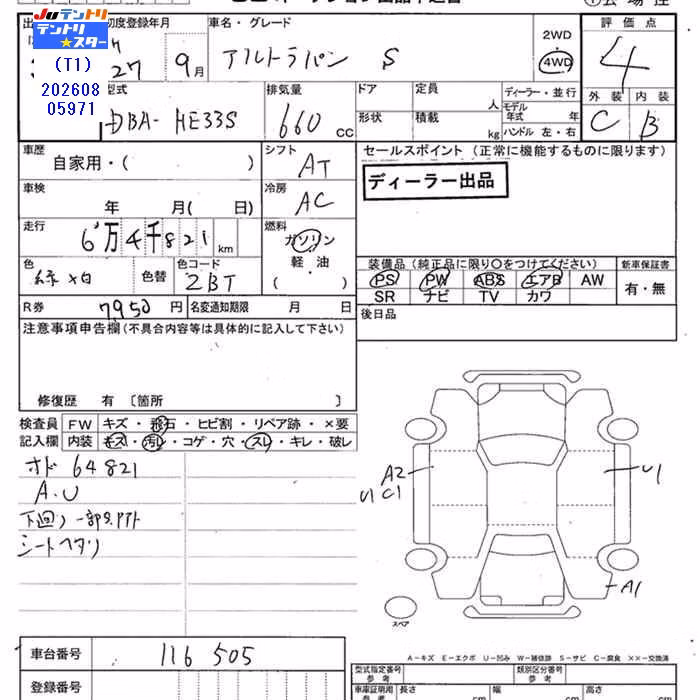 Juテントリ
テントリ★スター
(T1)
202608
05971
初度登録年月
27 9月
車名・グレード
アルトラパン S
2WD
4WD
評価点
4
外装 内装
C B
型式
DBA-HE33S
排気量
660 cc
ドア
形状
定員 人
積載 kg
ディーラー・並行
モデル年式 年
ハンドル 左・右
車歴
自家用・( )
シフト
AT
セールスポイント (正常に機能するものに限ります)
ディーラー出品
車検
年 月( 日)
冷房
AC
走行
6万4千821km
燃料
ガソリン
軽・油
( )
色
緑×白
色替
色コード
ZBT
装備品 (純正品に限り〇をつけてください)
PS PW ABS エアB AW
SR ナビ TV カワ
新車保証書
有・無
R券
7950円
名変通知期限 月 日
後日品
注意事項申告欄 (不具合内容等は具体的に記入して下さい)
修復歴 有 〔箇所 〕
検査員
記入欄
FW キズ・飛石・ヒビ割・リペア跡・×要
内装 キズ・汚レ・コゲ・穴・スレ・キレ・破レ
オド 64821
A.U
シートヘタリ
A2
U1 C1
U1
A1
スペア
車台番号
116505
登録番号
A-キズ E-エクボ U-凹み W-補修跡 S-サビ C-腐食 ××-交換済
型式指定番号
参考
類別区分番号
参考
車庫証明用
参考
長さ cm
幅 cm
高さ cm